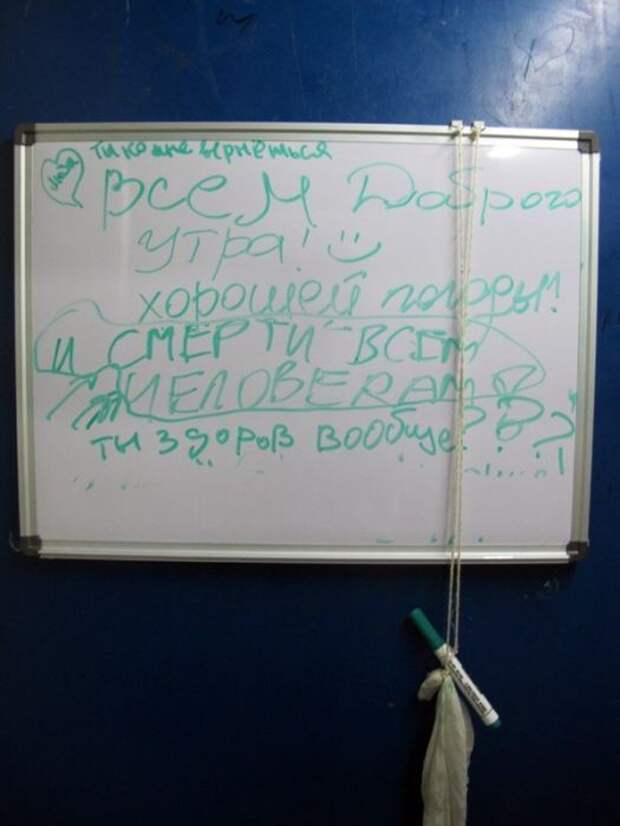 ти ко мне вернёться
Люба
Всем Доброго
утра!
хорошей погоды!
и СМЕРТИ ВСЕМ
ЧЕЛОВЕКАМ
ты здоров вообще???